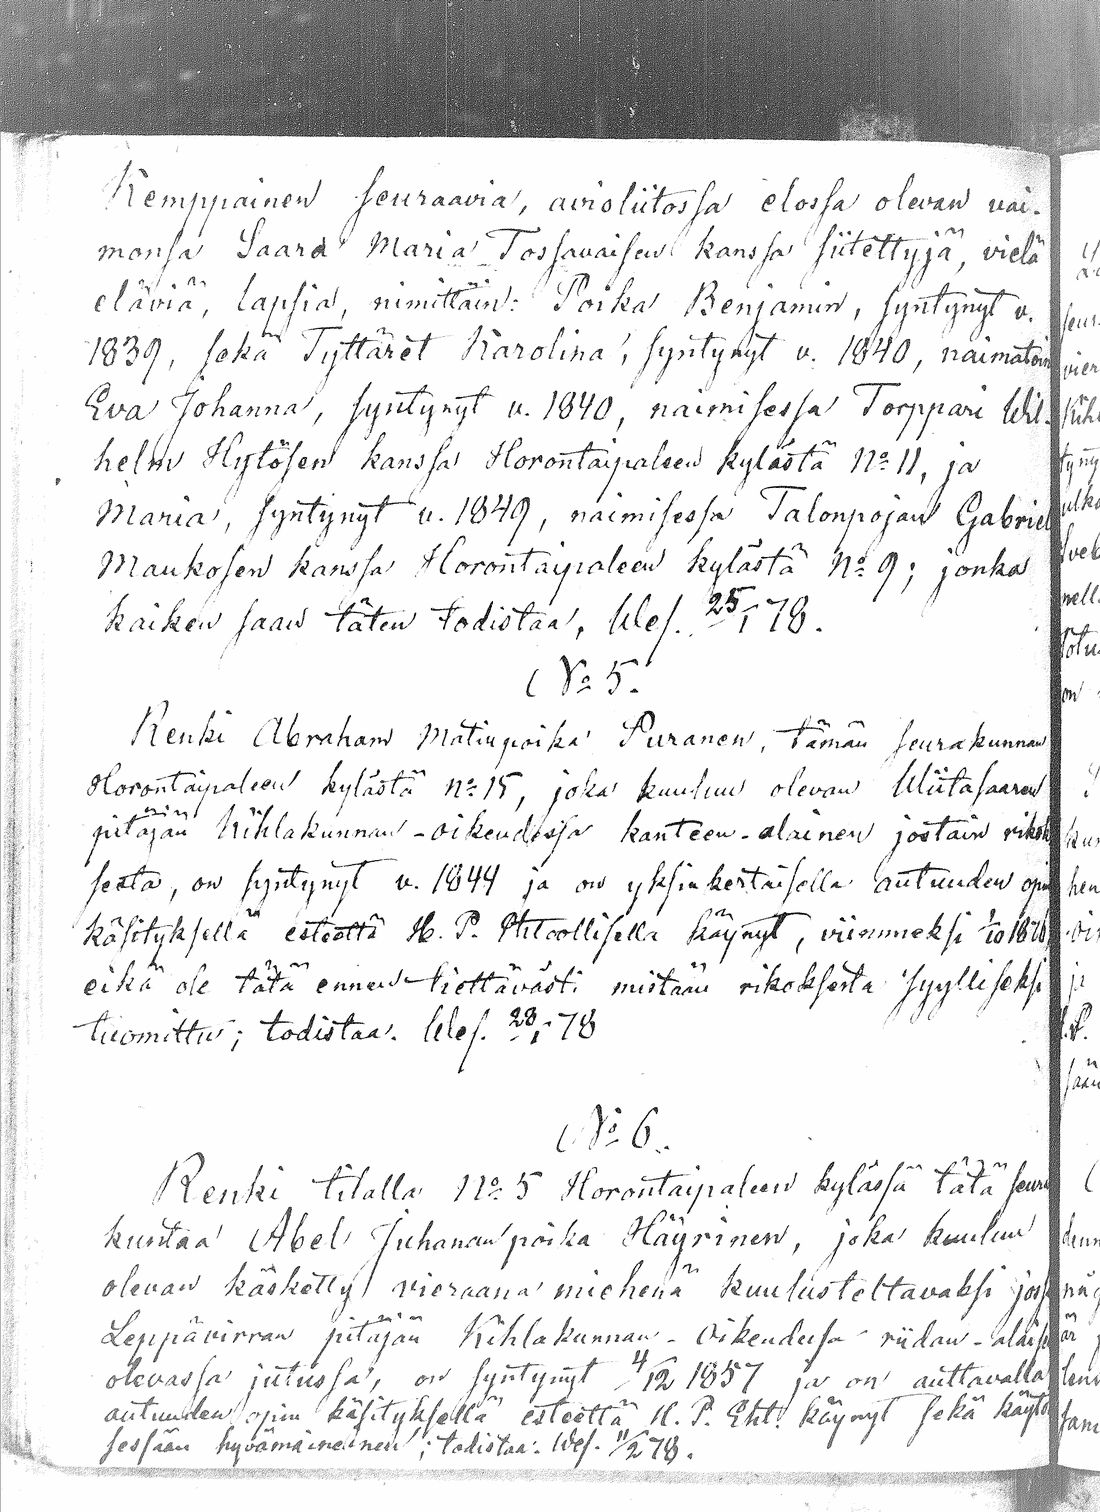 Kemppainen seuraavia, avioliitossa elossa olevan vai-
monsa Saara Maria Tossavaisen kanssa siitettyjä, vielä
eläviä, lapsia, nimittäin: Poika Benjamin, syntynyt v.
1839, sekä Tyttäret Karolina, syntynyt v. 1840, naimatoin
Eva Johanna, syntynyt v. 1840, naimisessa Torppari Wil-
helm Hytösen kanssa Horontaipaleen kylästä No 11, ja
Maria, syntynyt v. 1849, naimisessa Talonpojan Gabriel
Maukosen kanssa Horontaipaleen kylästä No 9; jonka
kaiken saan täten todistaa, Wes. 25/1 78.
No 5.
Renki Abraham Matinpoika Puranen, tämän seurakunnan
Horontaipaleen kylästä No 15, joka kuuluu olevan Wiitasaaren
pitäjän Kihlakunnan-oikeudessa kanteen-alainen jostain rikok
sesta, on syntynyt v. 1844 ja on yksinkertaisella autuuden opin
käsityksellä esteettä H. P. Ehtoollisella käynyt, viimmeksi 1/10 1876,
eikä ole tätä ennen tiettävästi mistään rikoksesta syylliseksi
tuomittu; todistaa. Wes. 28/1 78
No 6.
Renki tilalla No 5 Horontaipaleen kylässä tätä seura
kuntaa Abel Juhananpoika Häyrinen, joka kuuluu
olevan käsketty vieraana miehenä kuulusteltavaksi jossa
Leppävirran pitäjän Kihlakunnan-Oikeudessa riidan-alaise
olevassa jutussa, on syntynyt 4/12 1857 ja on auttavalla
autuuden opin käsityksellä esteettä H. P. Eht. käynyt sekä käytö
sessään hyvämaineinen; todistaa. Wes. 11/2 78.